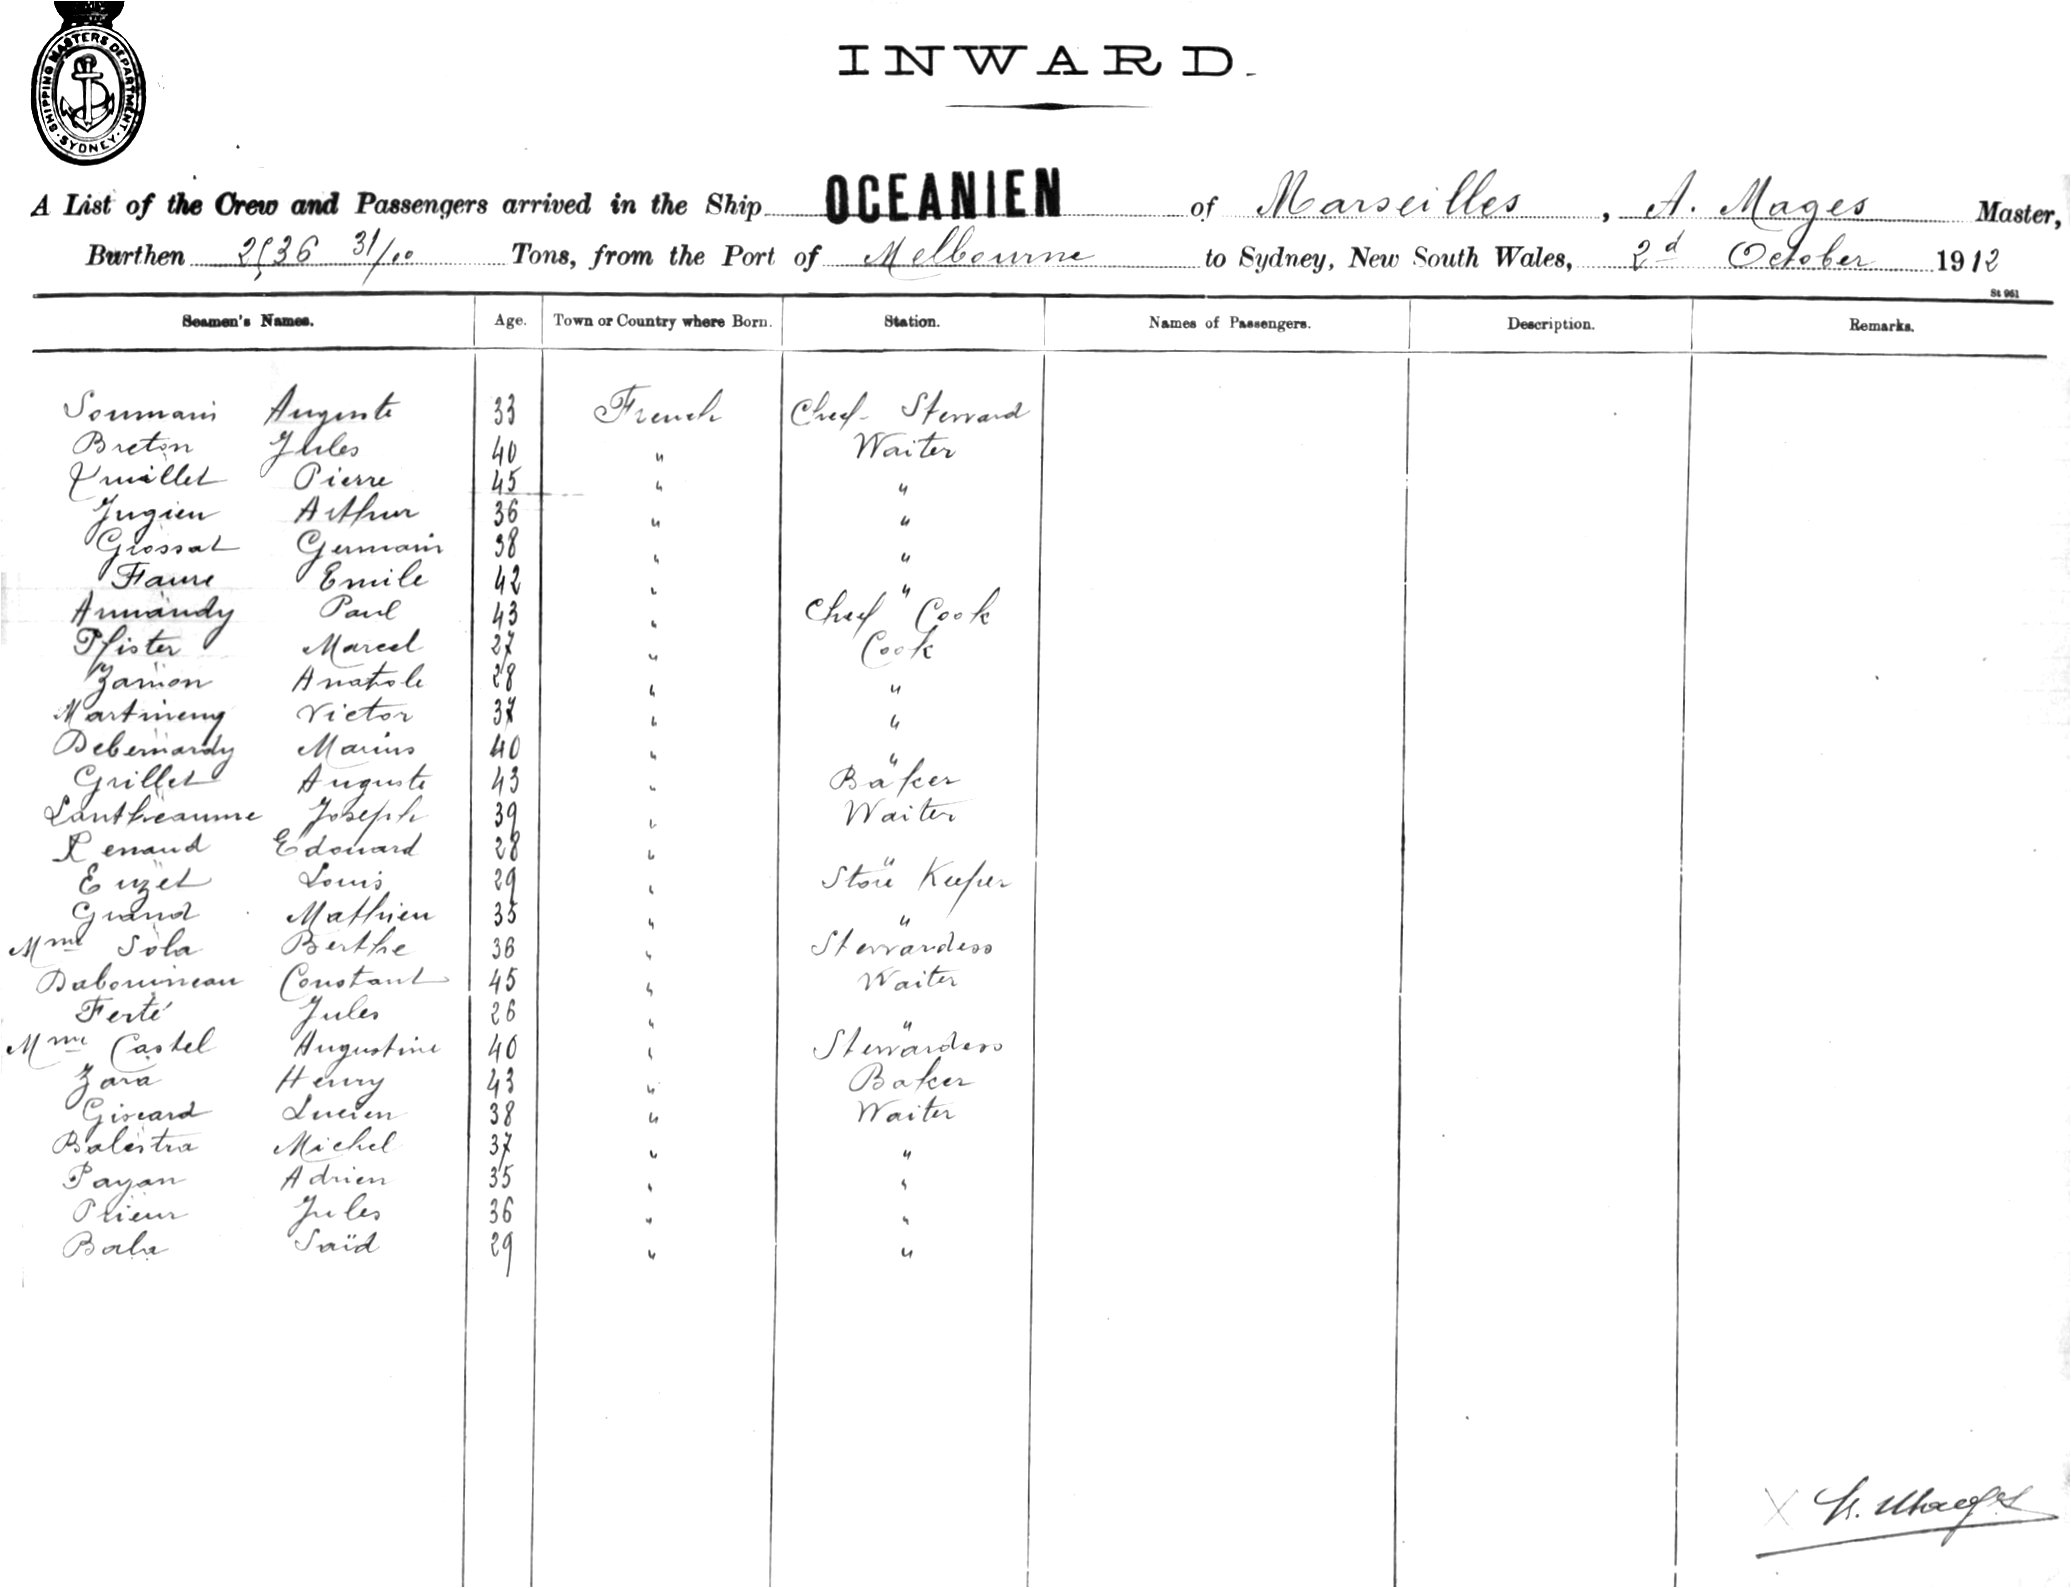 SHIPPING MASTERS DEPARTMENT · SYDNEY ·
INWARD.
A List of the Crew and Passengers arrived in the Ship OCEANIEN of Marseilles, A. Mages Master,
Burthen 31/100 Tons, from the Port of Melbourne to Sydney, New South Wales, 2d October 1912
St 961
Seamen's Names. Age. Town or Country where Born. Station. Names of Passengers. Description. Remarks.
Auguste 33 French Chief Steward
Breton Jules 40 " Waiter
Pierre 45 " "
Jugieu Arthur 36 " "
Grossat Germain 38 " "
Faure Emile 42 " "
Armandy Paul 43 " Chief Cook
Pfister Marcel 27 " Cook
Anatole 28 " "
Martineng Victor 37 " "
Debernardy Marius 40 " "
Grillet Auguste 43 " Baker
Lantheaume Joseph 39 " Waiter
Renaud Edouard 28 " "
Euzet Louis 29 " Store Keeper
Grand Mathieu 35 " "
Mme Sola Berthe 36 " Stewardess
Dabouineau Constant 45 " Waiter
Ferté Jules 26 " "
Mme Castel Augustine 40 " Stewardess
Zara Henry 43 " Baker
Giscard Lucien 38 " Waiter
Balestra Michel 37 " "
Payan Adrien 35 " "
Prieur Jules 36 " "
Saïd 29 " "